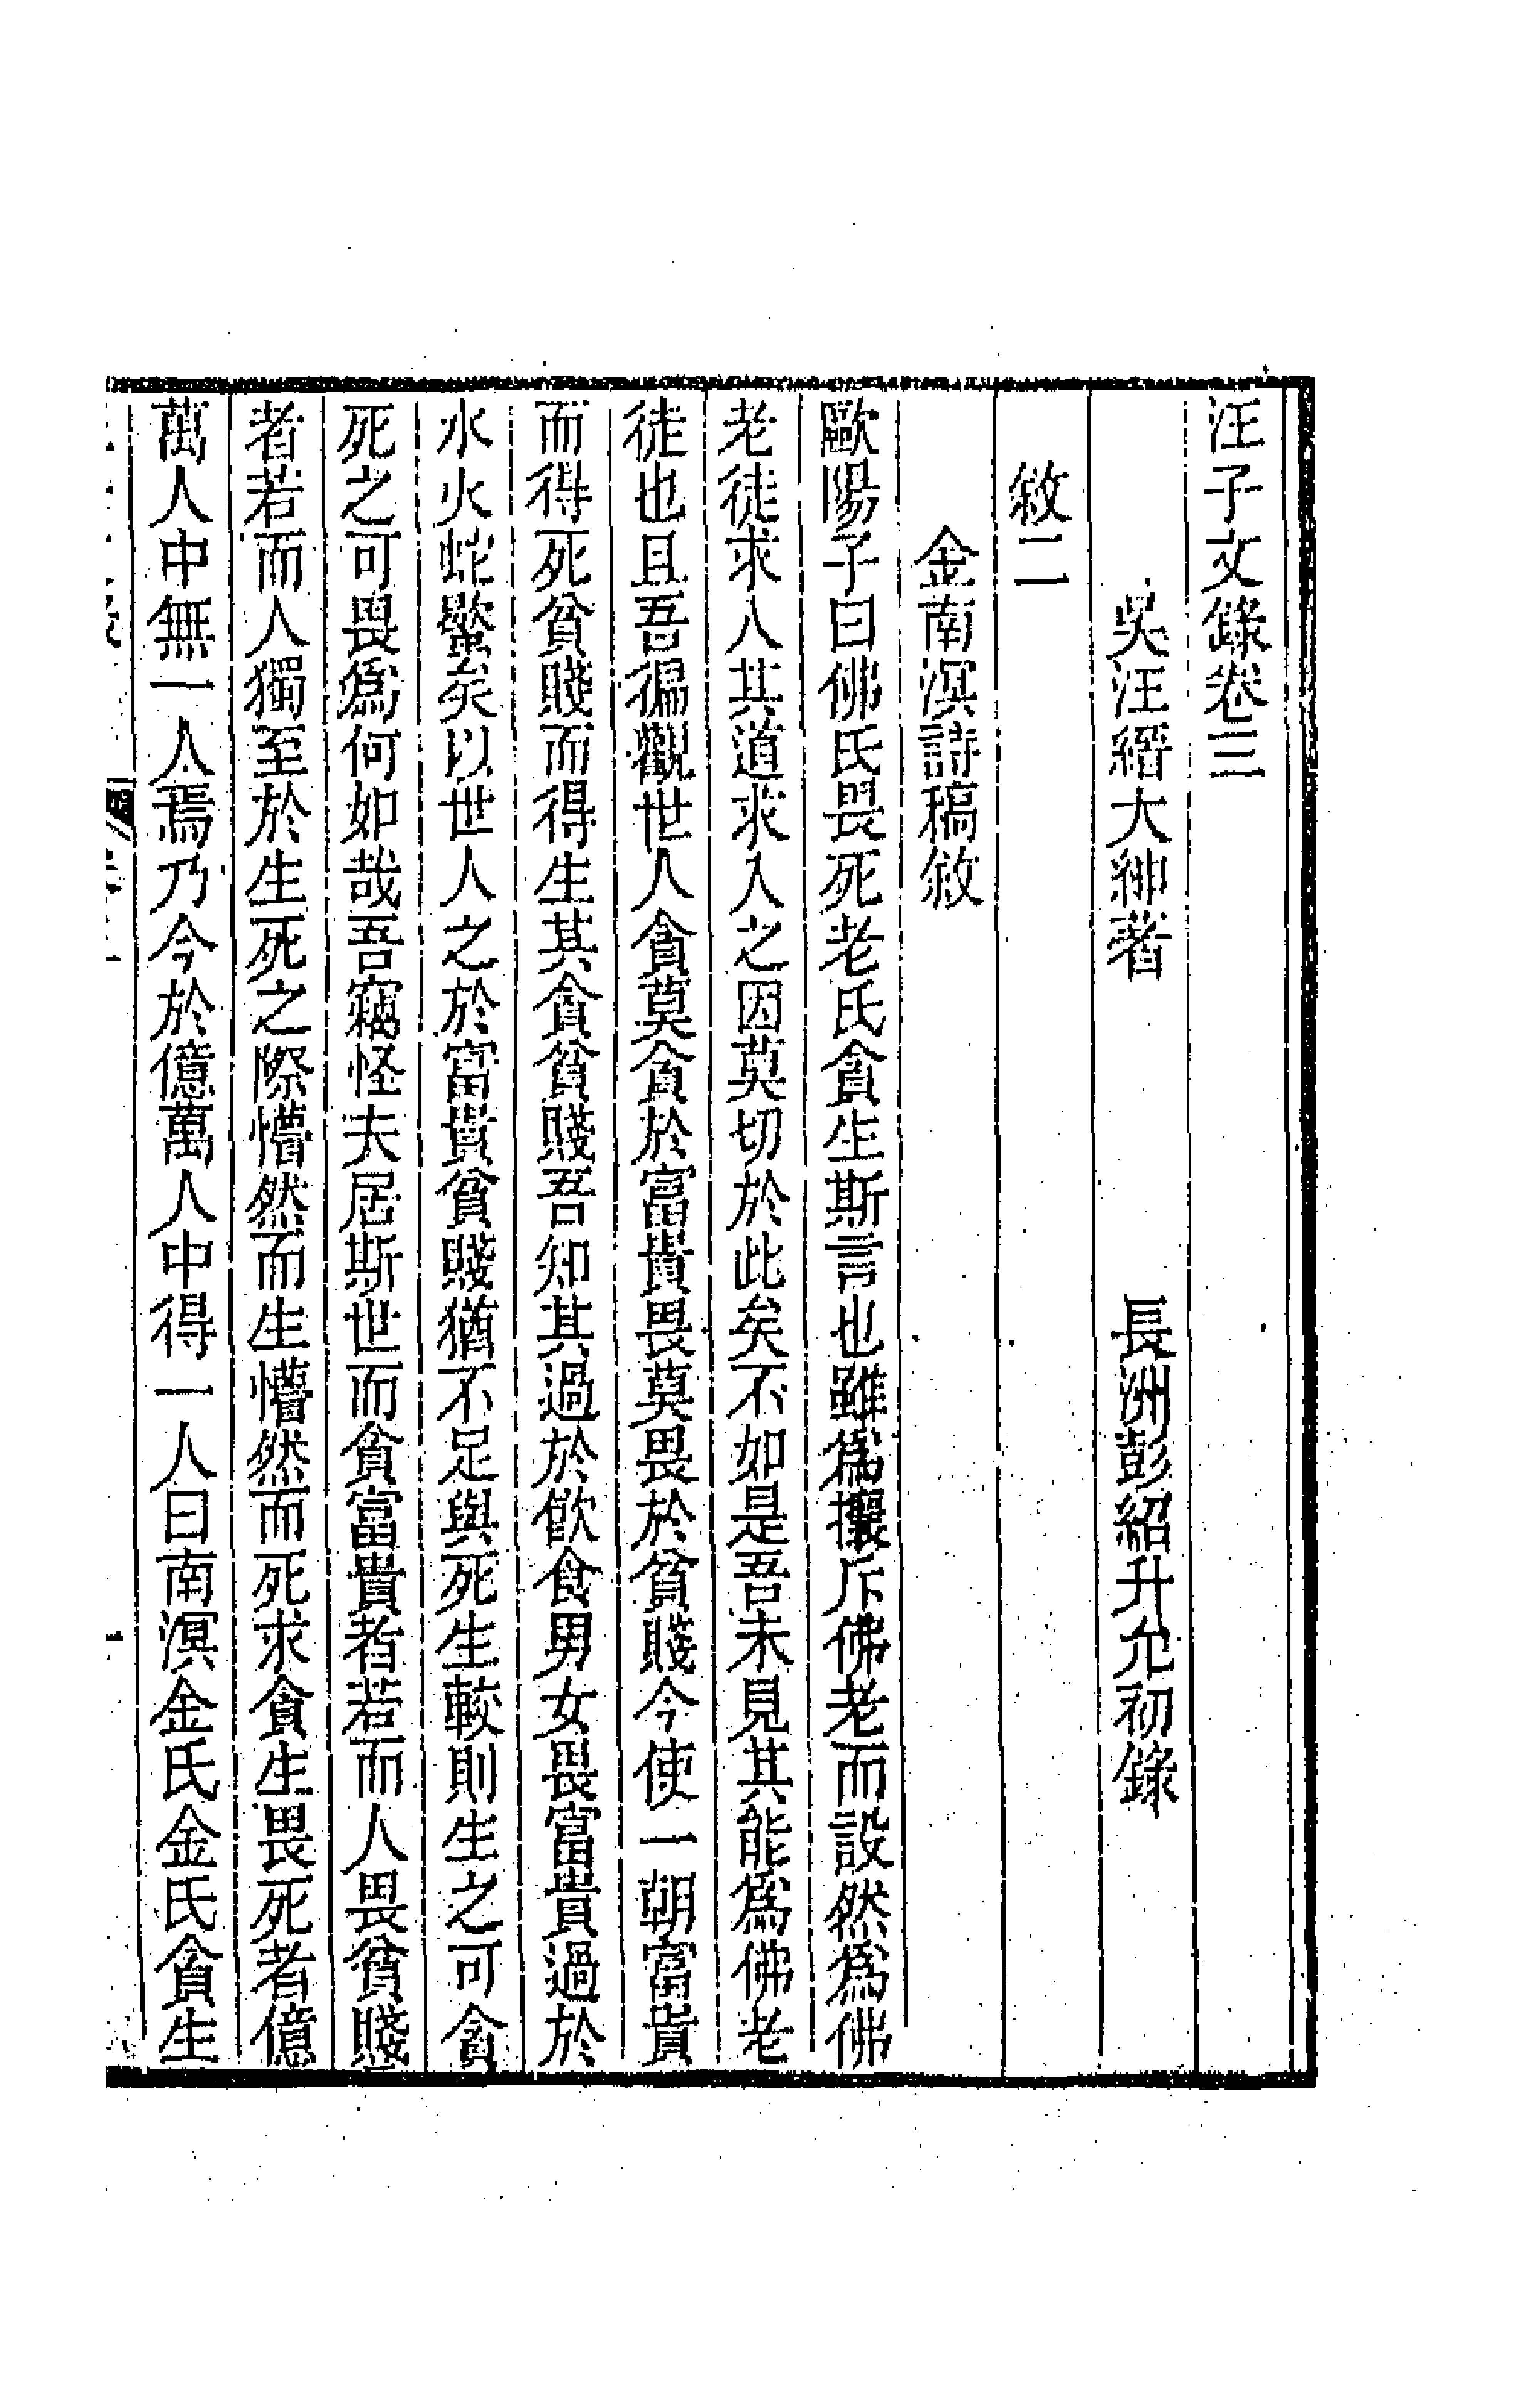 汪子文錄卷三
吳汪縉大紳著 長洲彭紹升允初錄
敘二
金南溟詩稿敘
歐陽子曰佛氏畏死老氏貪生斯言也雖爲攘斥佛老而設然爲佛
老徒求入其道求入之因莫切於此矣不如是吾未見其能爲佛老
徒也且吾徧觀世人貪莫貪於富貴畏莫畏於貧賤今使一朝富貴
而得死貧賤而得生其貪貧賤吾知其過於飮食男女畏富貴過於
水火蛇蠍矣以世人之於富貴貧賤猶不足與死生較則生之可貪
死之可畏爲何如哉吾竊怪夫居斯世而貪富貴者若而人畏貧賤
者若而人獨至於生死之際懵然而生懵然而死求貪生畏死者億
萬人中無一人焉乃今於億萬人中得一人曰南溟金氏金氏貪生